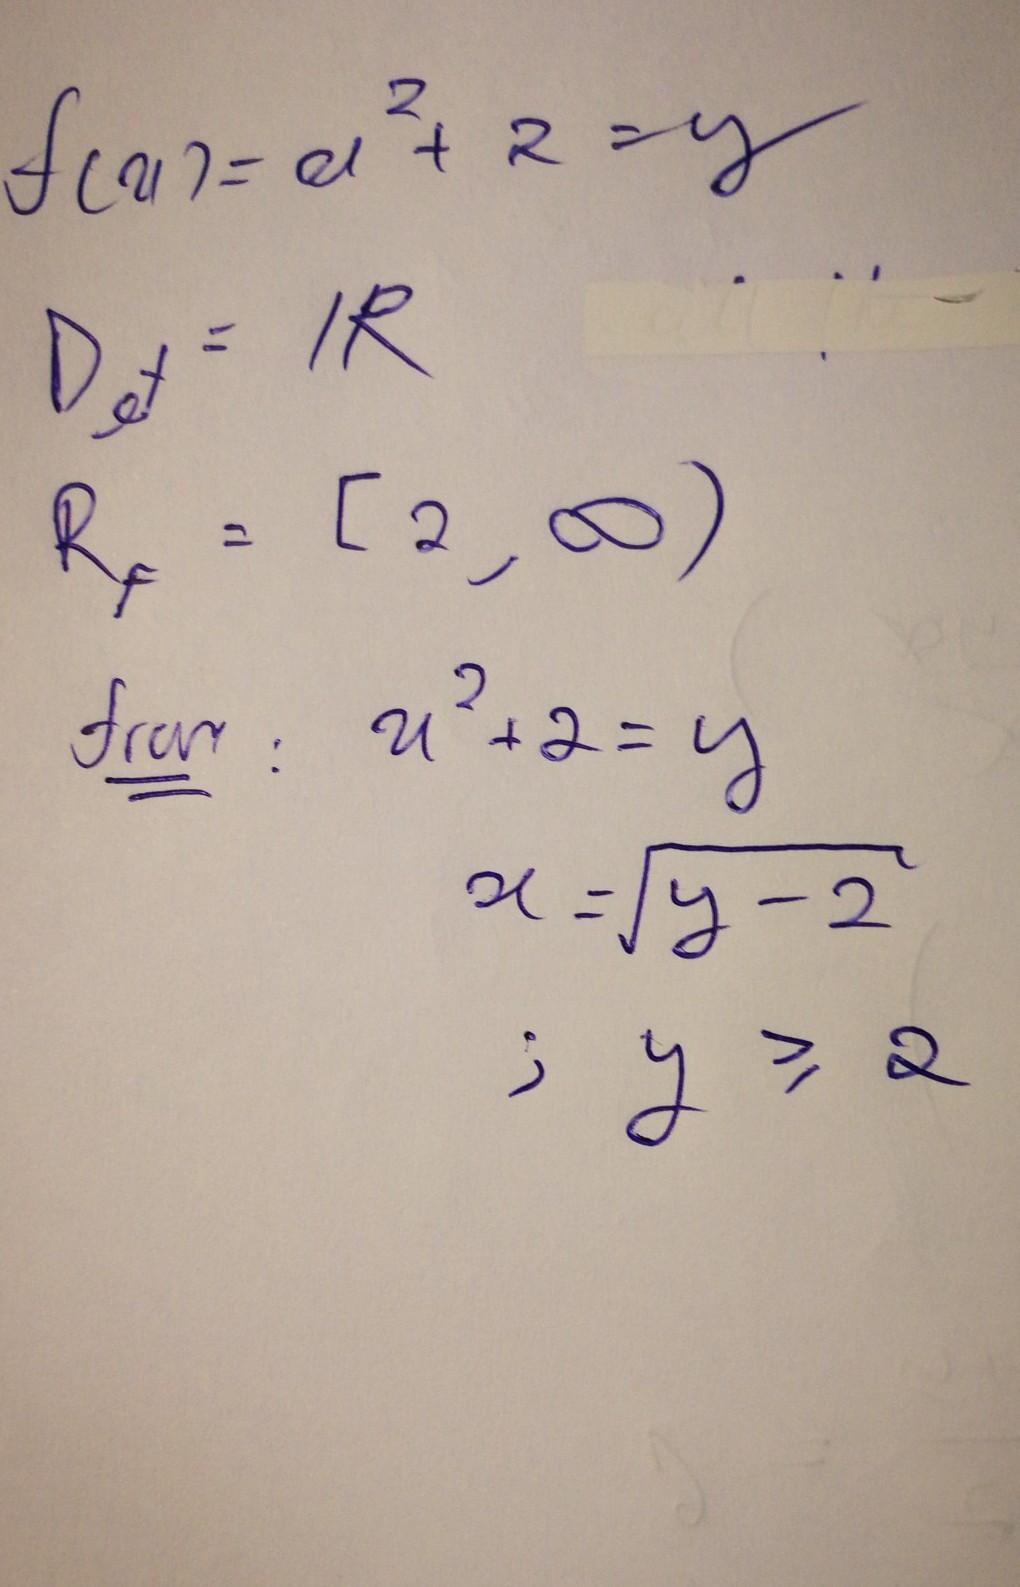 f(x) = x² + 2 = y
D_f = ℝ
R_f = [2, ∞)
from : x² + 2 = y
x = √(y − 2)
; y ⩾ 2